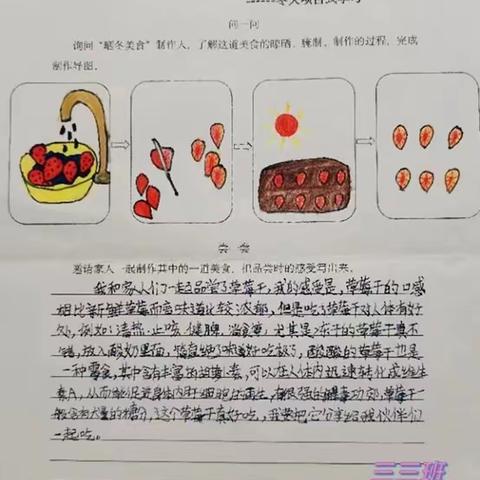 问一问
询问“晒冬美食”制作人，了解这道美食的晾晒、腌制、制作的过程，完成
制作导图。
尝一尝
邀请家人一起制作其中的一道美食，把品尝时的感受写出来。
我和家人们一起品尝了草莓干，我的感受是，草莓干的口感
相比新鲜草莓而言味道比较浓郁，但是吃了草莓干对人体有好
处，例如：清热、止咳、健脾、消食等，尤其是冻干的草莓干真不
错，放入酸奶里面，简直绝了味道好吃极了，酸酸的草莓干也是
一种零食，其中含丰富的胡萝卜素，可以在人体内迅速转化成维生
素A，从而能促进身体内用细胞的再生，有很强的功效，草莓干
般含有大量的糖分，这个草莓干真好吃，我要把它分享给我伙伴们
一起吃。
三三班